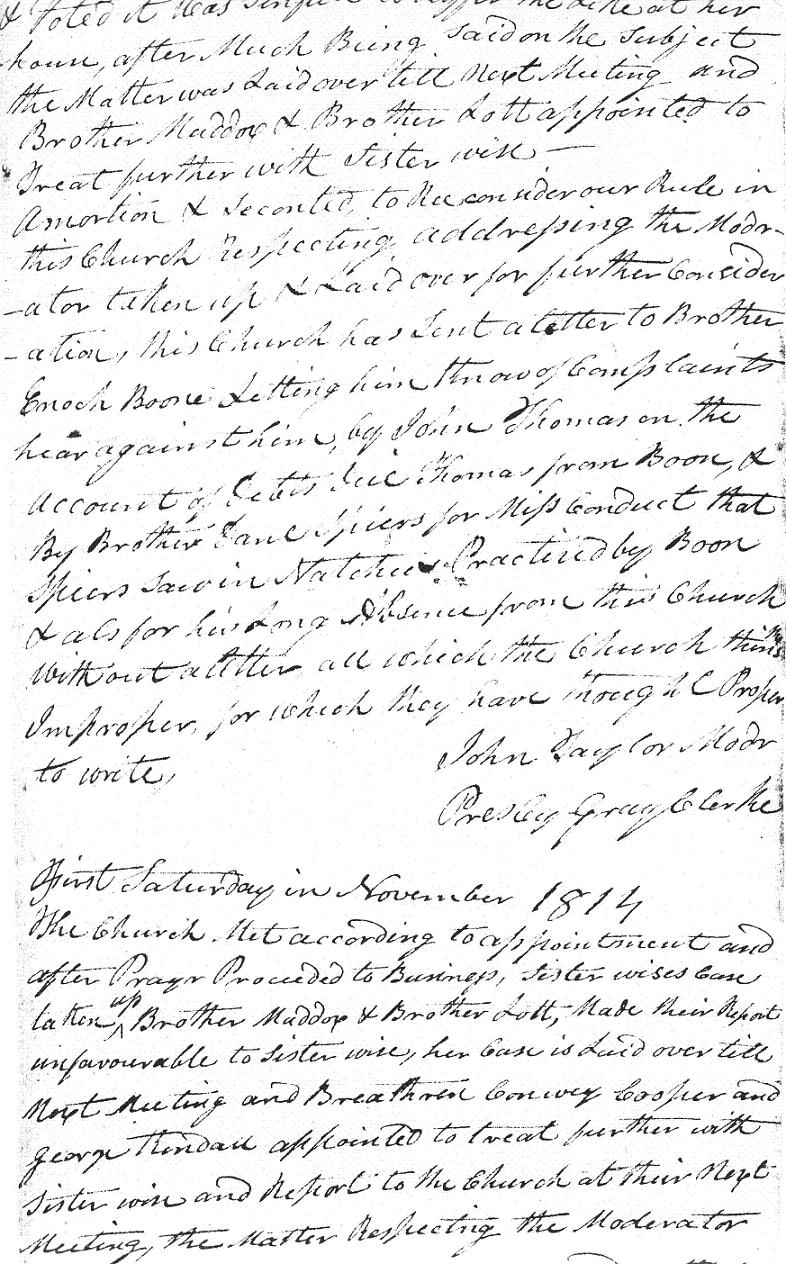 & Voted it was sinful to suffer the like at her
house, after Much Being Said on the Subject
the Matter was Laid over till Next Meeting and
Brother Maddox & Brother Lott appointed to
Treat further with Sister wise —
Amortion & Seconted, to Reeconsider our Rule in
this Church Respecting addressing the Modr-
-ator taken up & Laid over for further Consider
-ation, this Church has Sent a Letter to Brother
Enoch Boone Letting him Know of Complaints
hear against him, by John Thomas on the
account of Debts due Thomas from Boon, &
By Brother Spiers for Miss Conduct that
Spiers Saw in Natches Practised by Boon
& als for his Long Absence from this Church
without a letter all which the Church thinks
Improper, for which they have thought Proper
to write,
John Taylor Modr
Presley Gray Clerke
First Saturday in November 1814
The Church Met according to appointment and
after Prayr Proceeded to Business, Sister wises Case
taken up Brother Maddox & Brother Lott, Made their Report
unfavourable to Sister wise, her Case is Laid over till
Next Meeting and Breathren Conwey Cooper and
george Kendall appointed to treat further with
Sister wise and Report to the Church at their Next
Meeting, the Matter Respecting the Moderator